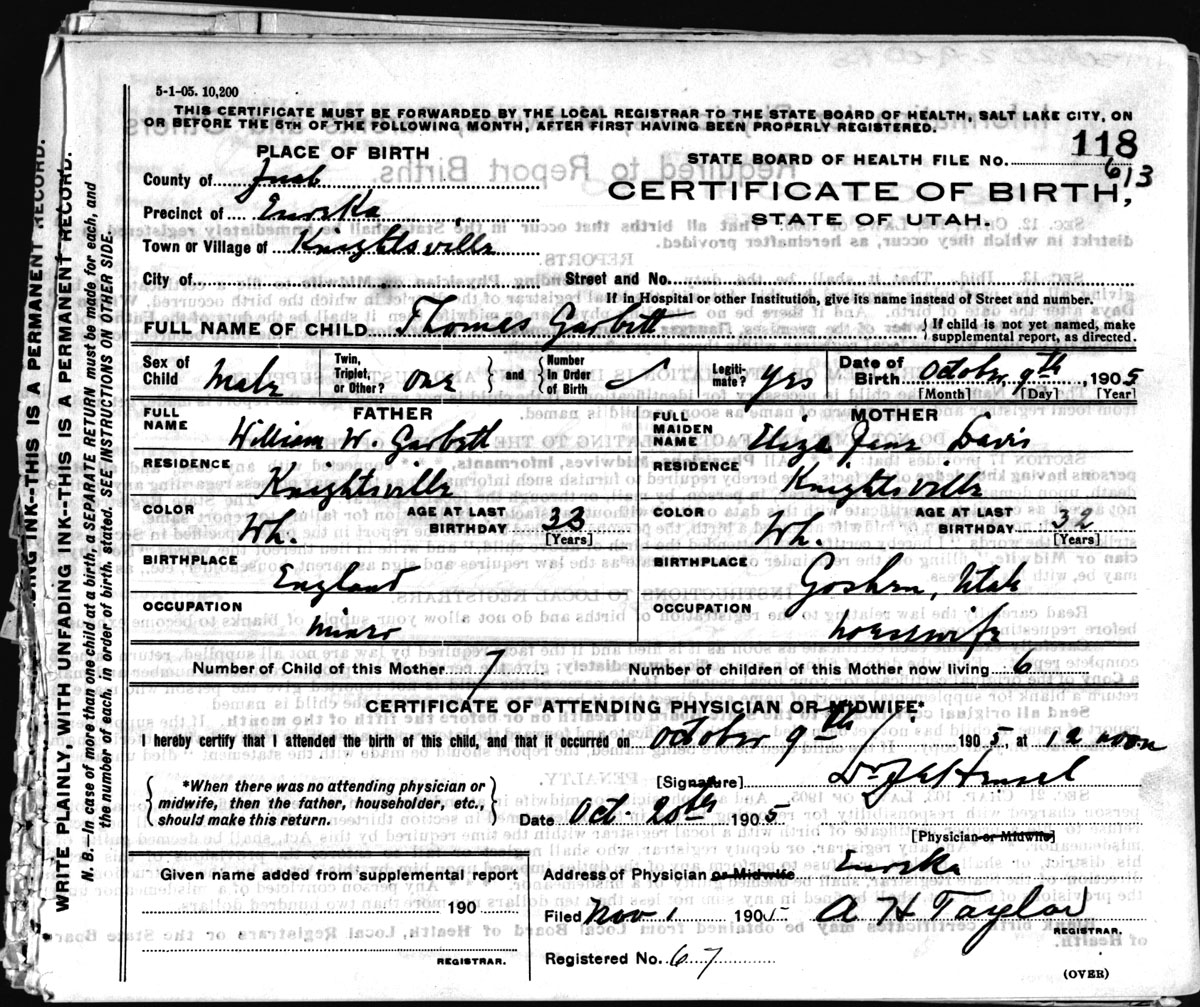 5-1-05. 10,200
THIS CERTIFICATE MUST BE FORWARDED BY THE LOCAL REGISTRAR TO THE STATE BOARD OF HEALTH, SALT LAKE CITY, ON
OR BEFORE THE 5TH OF THE FOLLOWING MONTH, AFTER FIRST HAVING BEEN PROPERLY REGISTERED.
PLACE OF BIRTH
STATE BOARD OF HEALTH FILE NO. 118
613
County of Juab
CERTIFICATE OF BIRTH,
Precinct of Eureka
STATE OF UTAH.
Town or Village of Knightsville
City of Street and No.
If in Hospital or other Institution, give its name instead of Street and number.
FULL NAME OF CHILD Thomas Garbett { If child is not yet named, make supplemental report, as directed.
Sex of Child Male Twin, Triplet, or Other? one } and { Number in Order of Birth Legiti-mate? yes Date of Birth October 9th, 1905
[Month] [Day] [Year]
FULL NAME FATHER William W. Garbett
FULL MAIDEN NAME MOTHER Eliza Jane Davis
RESIDENCE Knightsville
RESIDENCE Knightsville
COLOR Wh. AGE AT LAST BIRTHDAY 33 [Years]
COLOR Wh. AGE AT LAST BIRTHDAY 32 [Years]
BIRTHPLACE England
BIRTHPLACE Goshen, Utah
OCCUPATION Miner
OCCUPATION housewife
Number of Child of this Mother 7 Number of children of this Mother now living 6
CERTIFICATE OF ATTENDING PHYSICIAN OR MIDWIFE*
I hereby certify that I attended the birth of this child, and that it occurred on October 9th 1905, at 12 noon
{ *When there was no attending physician or midwife, then the father, householder, etc., should make this return. }
[Signature] Dr
Date Oct. 20th 1905
[Physician or Midwife]
Given name added from supplemental report
190
REGISTRAR.
Address of Physician or Midwife Eureka
Filed Nov 1 1905 A H Taylor
REGISTRAR.
Registered No. 67
(OVER)
WRITE PLAINLY, WITH UNFADING INK--THIS IS A PERMANENT RECORD.
N. B.--In case of more than one child at a birth, a SEPARATE RETURN must be made for each, and
the number of each, in order of birth, stated. SEE INSTRUCTIONS ON OTHER SIDE.
INK--THIS IS A PERMANENT RECORD.